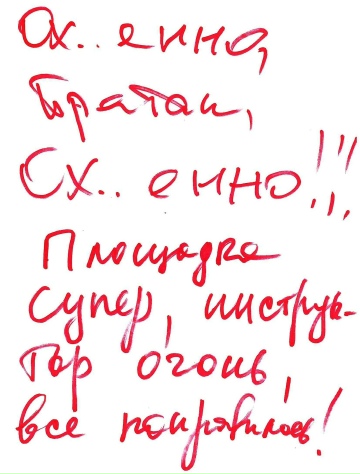 Ох..енно,
Братан,
Ох..енно!!!
Площадка
супер, инструк-
тор огонь,
все понравилось!